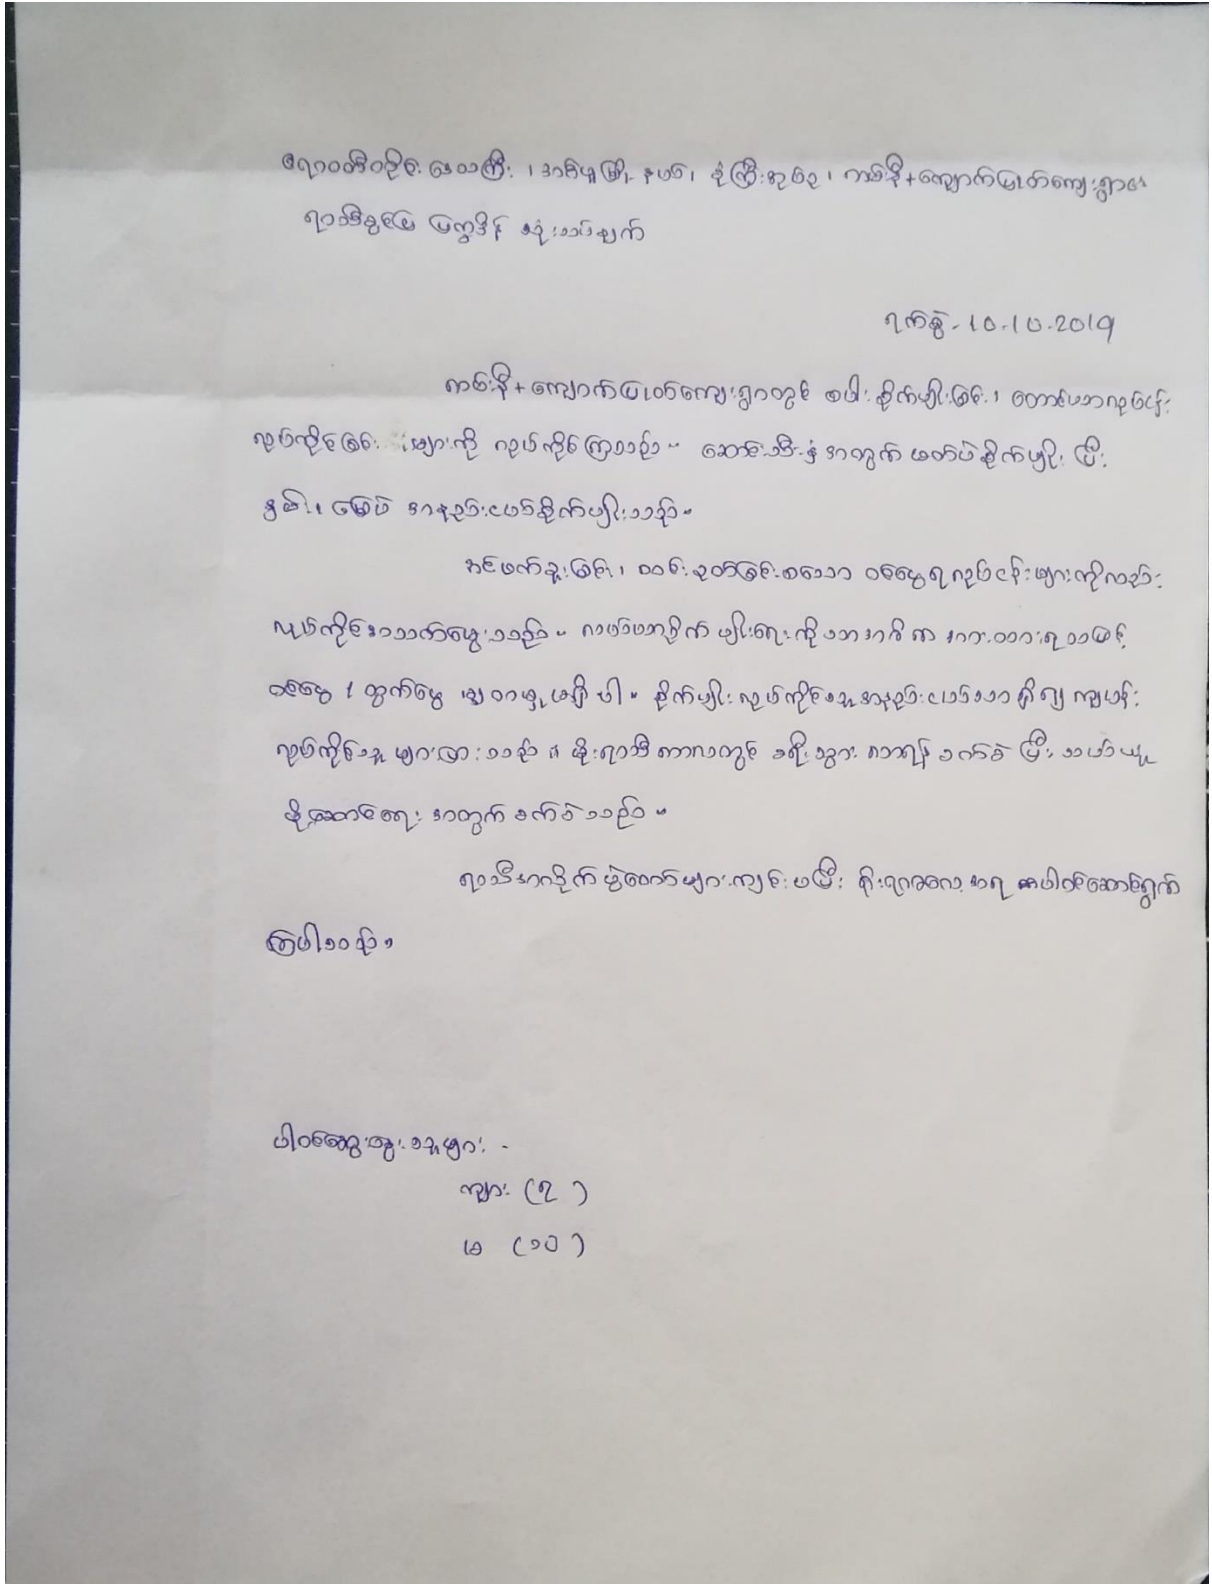 ဧရာဝတီတိုင်းဒေသကြီး ၊ အင်္ဂပူမြို့နယ်၊ စုံကြီးအုပ်စု ၊ ကမ်းနီ+ကျောက်ပြုတ်ကျေးရွာ၏
ရာသီခွင်ပြ ပြက္ခဒိန် သုံးသပ်ချက်
ရက်စွဲ - 10.10.2019
ကမ်းနီ+ကျောက်ပြုတ်ကျေးရွာတွင် စပါးစိုက်ပျိုးခြင်း ၊ တောင်ယာလုပ်ငန်း
လုပ်ကိုင်ခြင်း များကို လုပ်ကိုင်ကြသည်။ ဆောင်းသီးနှံအတွက် မတ်ပဲစိုက်ပျိုးပြီး
နှမ်း၊ မြေပဲ အနည်းငယ်စိုက်ပျိုးသည်။
ငါးဖက်ရှာခြင်း၊ ဝါးခုတ်ခြင်းစသော ဝင်ငွေရလုပ်ငန်းများကိုလည်း
လုပ်ကိုင်အသက်မွေးသည်။ လယ်ယာစိုက်ပျိုးရေးကိုသာအဓိကအားထားရသဖြင့်
ဝင်ငွေ ၊ ထွက်ငွေ မျှတမှုမရှိပါ။ စိုက်ပျိုးလုပ်ကိုင်သူအနည်းငယ်သာရှိ၍ ကျပန်း
လုပ်ကိုင်သူများပြားသည်။ မိုးရာသီကာလတွင် ခရီးသွားလာရန်ခက်ခဲပြီး သယ်ယူ
ပို့ဆောင်ရေးအတွက် ခက်ခဲသည်။
ရာသီအလိုက်ပွဲတော်များကျင်းပပြီး ရိုးရာဓလေ့အရ ပါဝင်ဆောင်ရွက်
ကြပါသည်။
ပါဝင်ဆွေးနွေးသူများ -
ကျား (၃ )
မ (၁၀ )